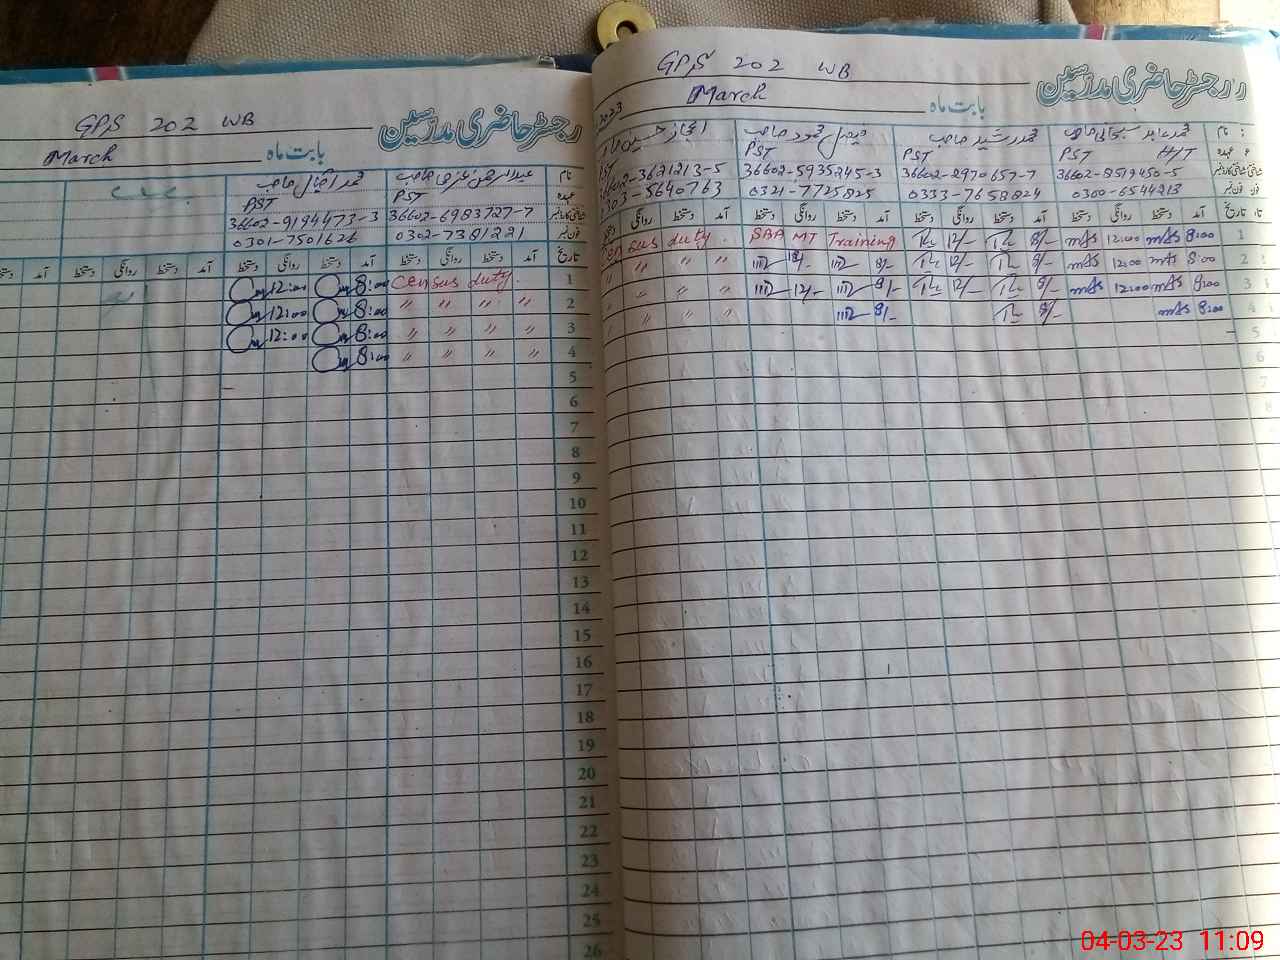 GPS 202 WB
رجسٹر حاضری مدرسین
March
بابت ماہ
محمد اقبال صاحب
نام
PST
PST
عہدہ
36602-9194473-3
36602-6983727-7
شناختی کارڈ نمبر
0301-7501626
0302-7381221
فون نمبر
دستخط آمد دستخط روانگی دستخط آمد دستخط روانگی دستخط آمد دستخط روانگی دستخط آمد تاریخ
12:00 8:00 Census duty. 1
12:00 8:00 〃 〃 〃 〃 2
12:00 8:00 〃 〃 〃 〃 3
8:00 〃 〃 〃 〃 4
5
6
7
8
9
10
11
12
13
14
15
16
17
18
19
20
21
22
23
24
25
26
GPS 202 WB
رجسٹر حاضری مدرسین
2023
March
بابت ماہ
نام
PST
PST
PST
PST H/T
عہدہ
36602-3621213-5
36602-5935245-3
36602-2970657-7
36602-8519450-5
0303-5640763
0321-7725825
0333-7658824
0300-6544213
روانگی دستخط آمد دستخط روانگی دستخط آمد دستخط روانگی دستخط آمد دستخط روانگی دستخط آمد تاریخ
Census duty. SBA MT Training 12/- 8/- 12:00 8:00 1
〃 〃 〃 12/- 8/- 12/- 8/- 12:00 8:00 2
〃 〃 〃 12/- 8/- 12/- 8/- 12:00 8:00 3
〃 〃 〃 8/- 8/- 8:00 4
5
6
7
8
04-03-23 11:09